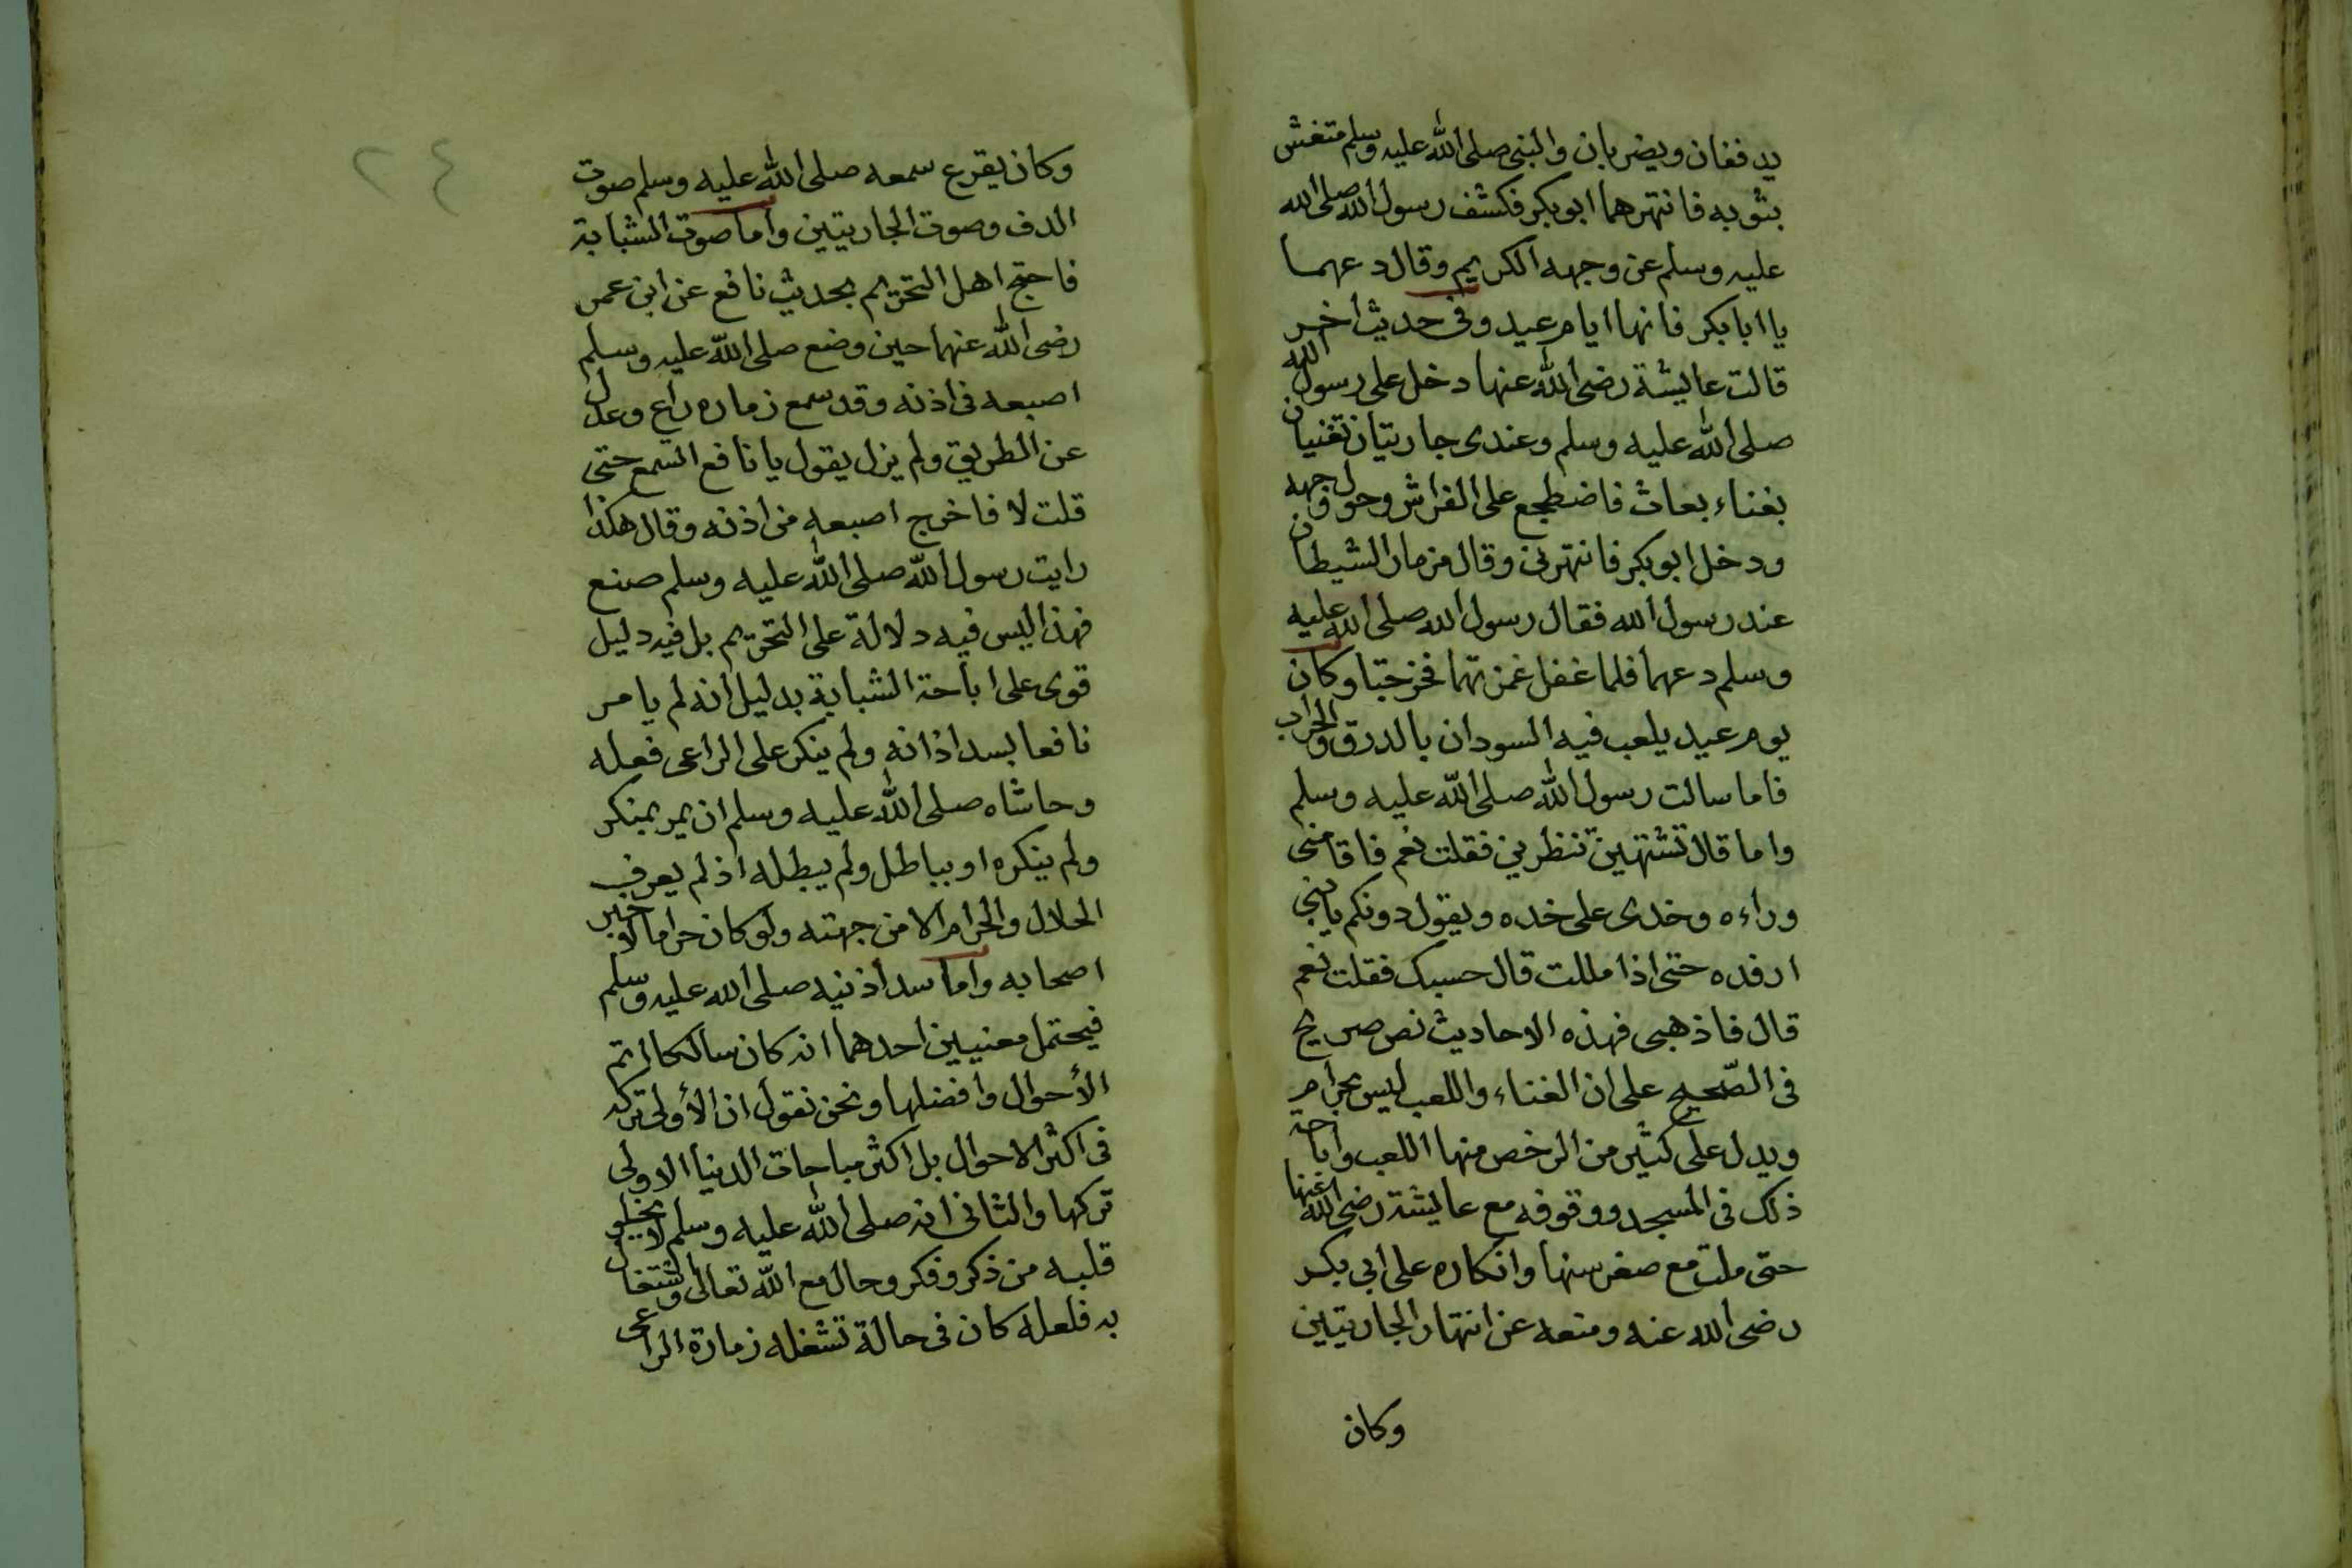 يدففان ويضربان والنبى صلى الله عليه وسلم متغش
بثوبه فانتهرهما ابوبكر فكشف رسول الله صلى الله
عليه وسلم عن وجهه الكريم وقال دعهما
يا ابابكر فانها ايام عيد وفى حديث اخر
قالت عايشة رضى الله عنها دخل على رسول الله
صلى الله عليه وسلم وعندى جاريتان تغنيان
بغناء بعاث فاضطجع على الفراش وحول وجهه
ودخل ابوبكر فانتهرنى وقال مزمار الشيطان
عند رسول الله فقال رسول الله صلى الله عليه
وسلم دعهما فلما غفل غمزتهما فخرجتا وكان
يوم عيد يلعب فيه السودان بالدرق والحراب
فاما سالت رسول الله صلى الله عليه وسلم
واما قال تشتهين تنظرين فقلت نعم فاقامنى
وراءه وخدى على خده ويقول دونكم يا بنى
ارفده حتى اذا مللت قال حسبك فقلت نعم
قال فاذهبى فهذه الاحاديث نص صريح
فى الصّحيح على ان الغناء واللعب ليس بحرام
ويدل على كثير من الرخص منها اللعب واباحة
ذلك فى المسجد ووقوفه مع عايشة رضى الله عنها
حتى ملت مع صغر سنها وانكاره على ابى بكر
رضى الله عنه ومنعه عن انتهار الجاريتين
وكان
٢٤
وكان يقرع سمعه صلى الله عليه وسلم صوت
الدف وصوت الجاريتين واما صوت الشبابة
فاحتج اهل التحريم بحديث نافع عن ابن عمر
رضى الله عنهما حين وضع صلى الله عليه وسلم
اصبعه فى اذنه وقد سمع زماره راع وعدل
عن الطريق ولم يزل يقول يا نافع السمع حتى
قلت لا فاخرج اصبعه من اذنه وقال هكذا
رايت رسول الله صلى الله عليه وسلم صنع
فهذا ليس فيه دلالة على التحريم بل فيه دليل
قوى على اباحة الشبابة بدليل انه لم يامر
نافعا بسد اذانه ولم ينكر على الراعى فعله
وحاشاه صلى الله عليه وسلم ان يمر بمنكر
ولم ينكره او بباطل ولم يبطله اذ لم يعرف
الحلال والحرام الا من جهته ولو كان حراما لاخبر
اصحابه واما سد اذنيه صلى الله عليه وسلم
فيحتمل معنيين احدهما انه كان سالكا اتم
الأحوال وافضلها ونحن نقول ان الأولى تركه
فى اكثر الاحوال بل اكثر مباحات الدنيا الاولى
تركها والثانى انه صلى الله عليه وسلم لا يخلو
قلبه من ذكر وفكر وحال مع الله تعالى واشتغال
به فلعله كان فى حالة تشغله زمارة الراعى